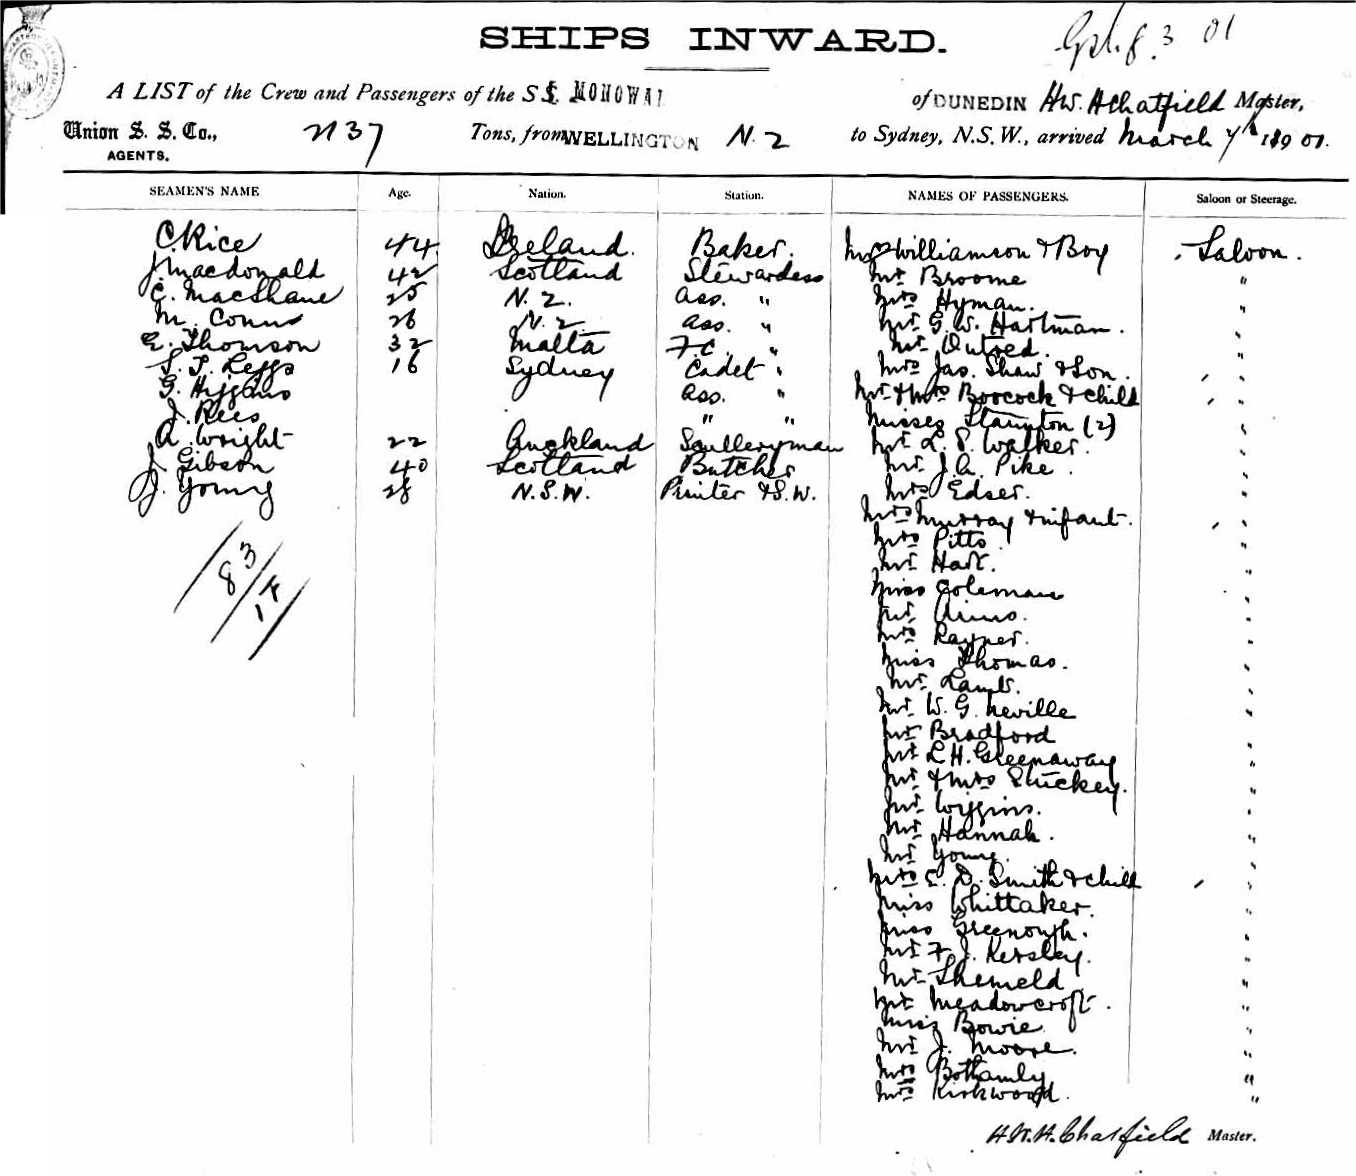 SHIPS INWARD.
8. 3 01
A LIST of the Crew and Passengers of the S.S. MONOWAI of DUNEDIN H.W.H Chatfield Master,
Union S. S. Co., 2137 Tons, from WELLINGTON N.Z to Sydney, N.S.W., arrived March 7th 1901.
AGENTS.
SEAMEN'S NAME Age. Nation. Station. NAMES OF PASSENGERS. Saloon or Steerage.
C. Rice 44 Ireland. Baker. Mrs Williamson & Boy Saloon.
J. Macdonald 42 Scotland Stewardess Mr Broome "
C. MacShane 25 N.Z. Ass. " Mrs Hyman. "
M. 26 N.Z. Ass. " Mr G. W. Hartman. "
E. Thomson 32 Malta F.C. " Mr Outred. "
S. T. Leggs 16 Sydney Cadet " Mrs Jas. Shaw & Son. "
G. Higgins Ass. " Mr & Mrs Boocock & child "
J. Rees " " Misses Staunton (2) "
A. Wright 22 Auckland Sculleryman Mr L. S. Walker. "
J. Gibson 40 Scotland Butcher Mr J. A. Pike. "
J. Young 28 N.S.W. Printer & S.W. Mrs Edser. "
Mrs Murray & infant. "
Mrs Pitts "
Mr Hart. "
Miss Coleman "
Mr "
Mrs Rayner. "
Miss Thomas. "
Mr Lamb. "
Mr W. G. Neville "
Mr Bradford "
Mr L H. Greenaway "
Mr & Mrs Stuckey. "
Mr Wiggins. "
Mr Hannah. "
Mr Young. "
Mrs E. D. Smith & child "
Miss Whittaker. "
Miss Greenough. "
Mr F. J. Kersley. "
Mr Shemeld "
Mr Meadowcroft. "
Miss Bowie. "
Mr J. Moore. "
Mrs Bothamly "
Mrs Kirkwood. "
83/18
H.W.H. Chatfield Master.